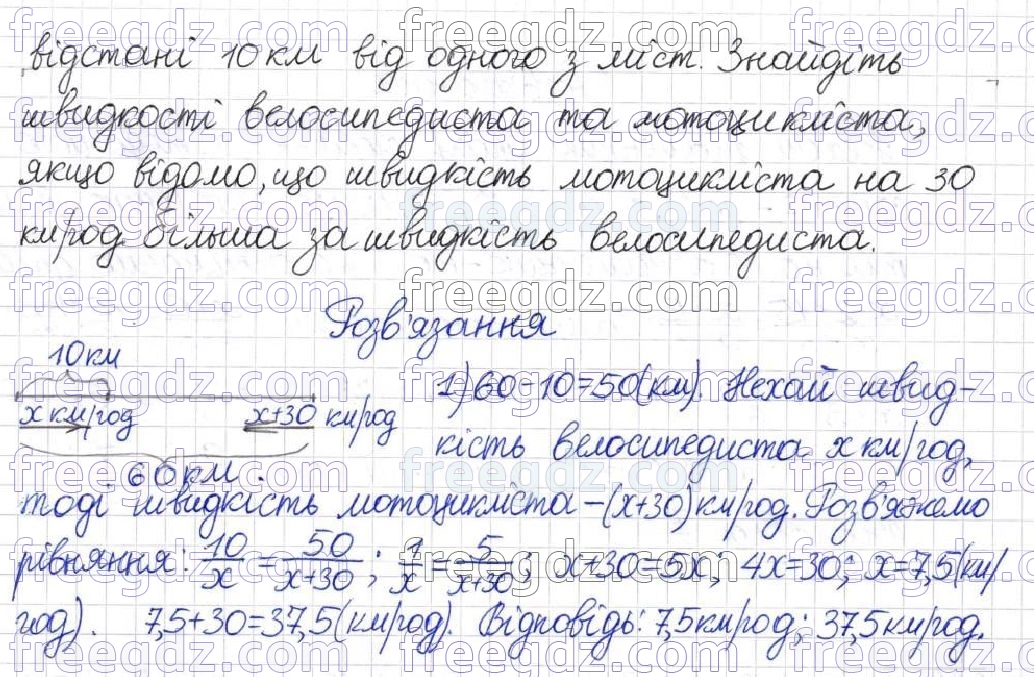 відстані 10 км від одного з міст. Знайдіть
швидкості велосипедиста та мотоцикліста,
якщо відомо, що швидкість мотоцикліста на 30
км/год більша за швидкість велосипедиста.
Розв'язання
10 км
x км/год
x+30 км/год
60 км.
1) 60-10=50(км). Нехай швид-
кість велосипедиста x км/год,
тоді швидкість мотоцикліста - (x+30) км/год. Розв'яжемо
рівняння: 10/x = 50/(x+30); 1/x = 5/(x+30); x+30=5x; 4x=30; x=7,5(км/
год). 7,5+30=37,5(км/год). Відповідь: 7,5 км/год; 37,5 км/год.
freegdz.com